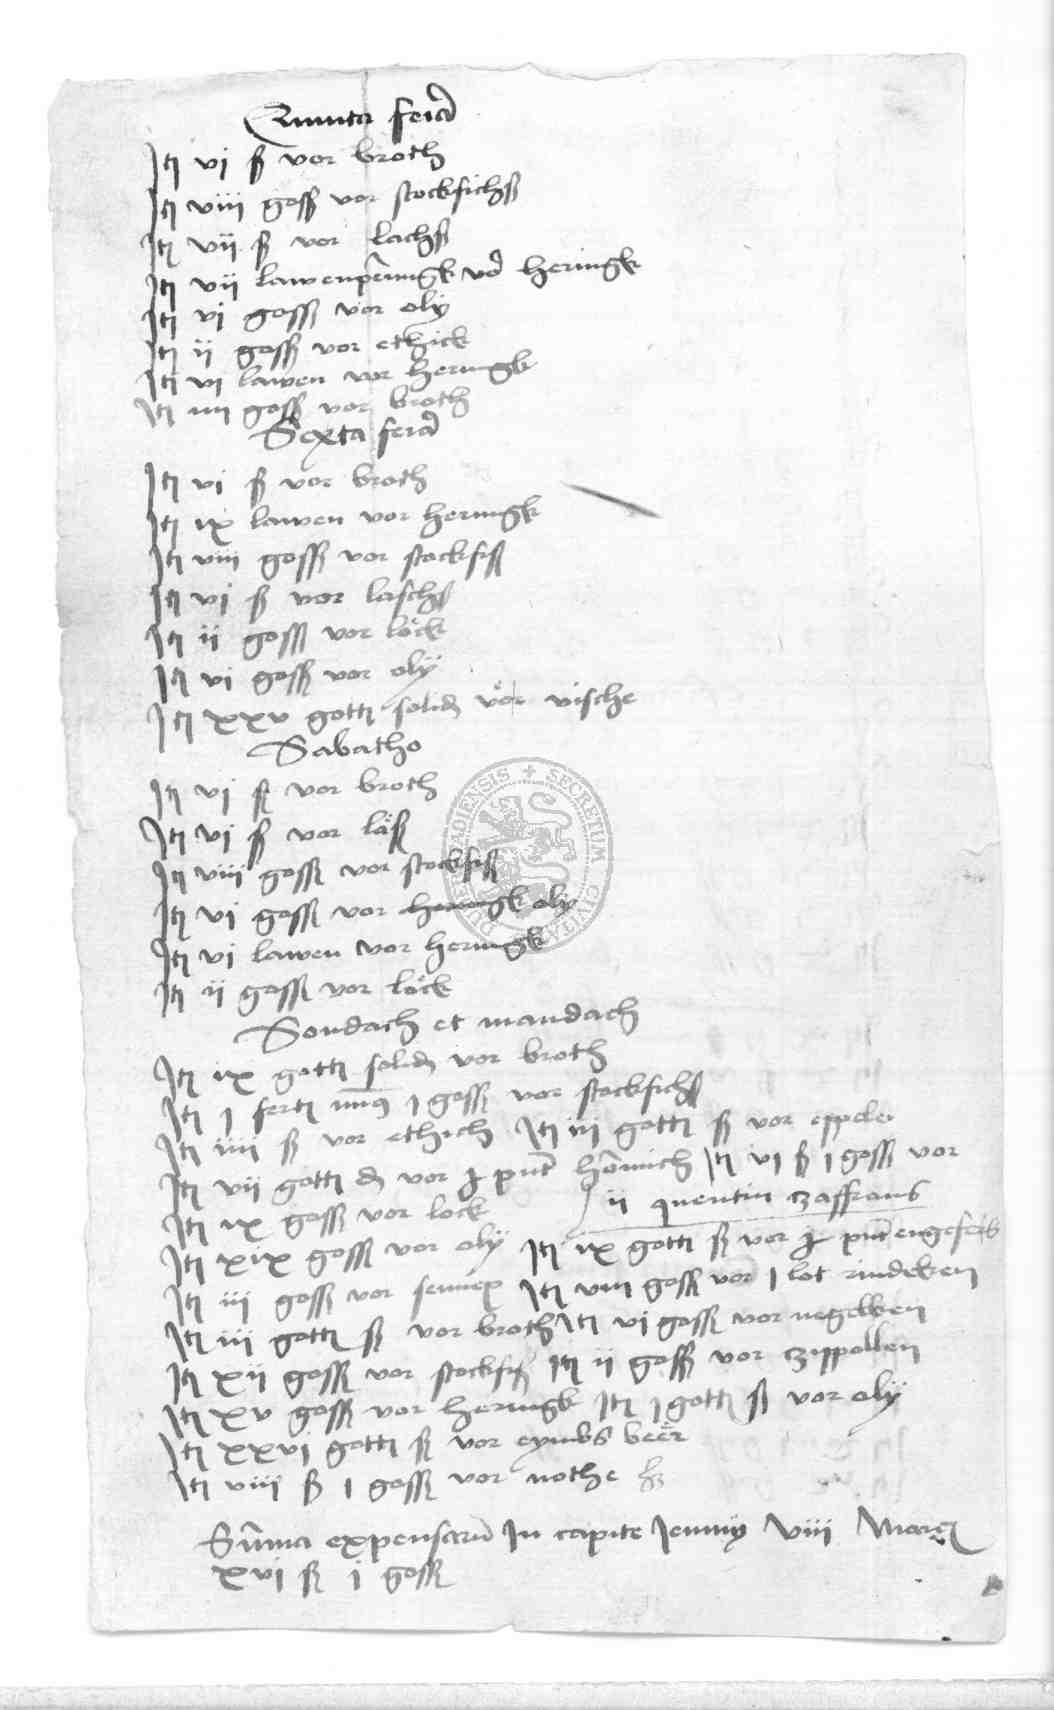 Quinta feria
Itj vj ß vor broth
Itj viii gossz vor stockfichß
Itj vij ß vor lachß
Itj vij lawenpēningk vor heringk
Itj vj gossz vor olÿ
Itj ij gossz vor ethick
Itj vj lawen vor heringk
Itj iiij gossz vor broth
Sexta feria
Itj vj ß vor broth
Itj ix lawen vor heringk
Itj viii gossz vor stockfiß
Itj vj ß vor laschß
Itj ij gossz vor lo̊ck
Itj vj gossz vor olÿ
Itj xxv gottj solid vo̊r vische
Sabatho
Itj vj ß vor broth
Itj vj ß vor laß
Itj viii gossz vor stockfiß
Itj vj gossz vor heringk olÿ
Itj vj lawen vor heringk
Itj ij gossz vor lo̊ck
Sondach et mandach
Itj ix gottj solid vor broth
Itj j fertj min9 j gossz vor stockfichß
Itj iiij ß vor ethich Itj iij gottj ß vor eppele
Itj vij gottj d vor j punt hōnnich Itj vj ß j gossz vor
ij quentin czaffrans
Itj ix gossz vor lock
Itj xix gossz vor olÿ Itj ix gottj ß vor j punt engefers
Itj iij gossz vor sennep Itj viii gossz vor j lot rindeken
Itj iij gottj ß vor broth Itj vj gossz vor negelken
Itj xij gossz vor stockfiß Itj ij gossz vor czippollen
Itj xv gossz vor heringk Itj j gottj ß vor olÿ
Itj xxvj gottj ß vor eymbs beer
Itj viii ß j gossz vor nothe
Sūma expensarū In capite Jeiunÿ viii Marcz
xvj ß j gossz
SECRETUM CIVITATIS